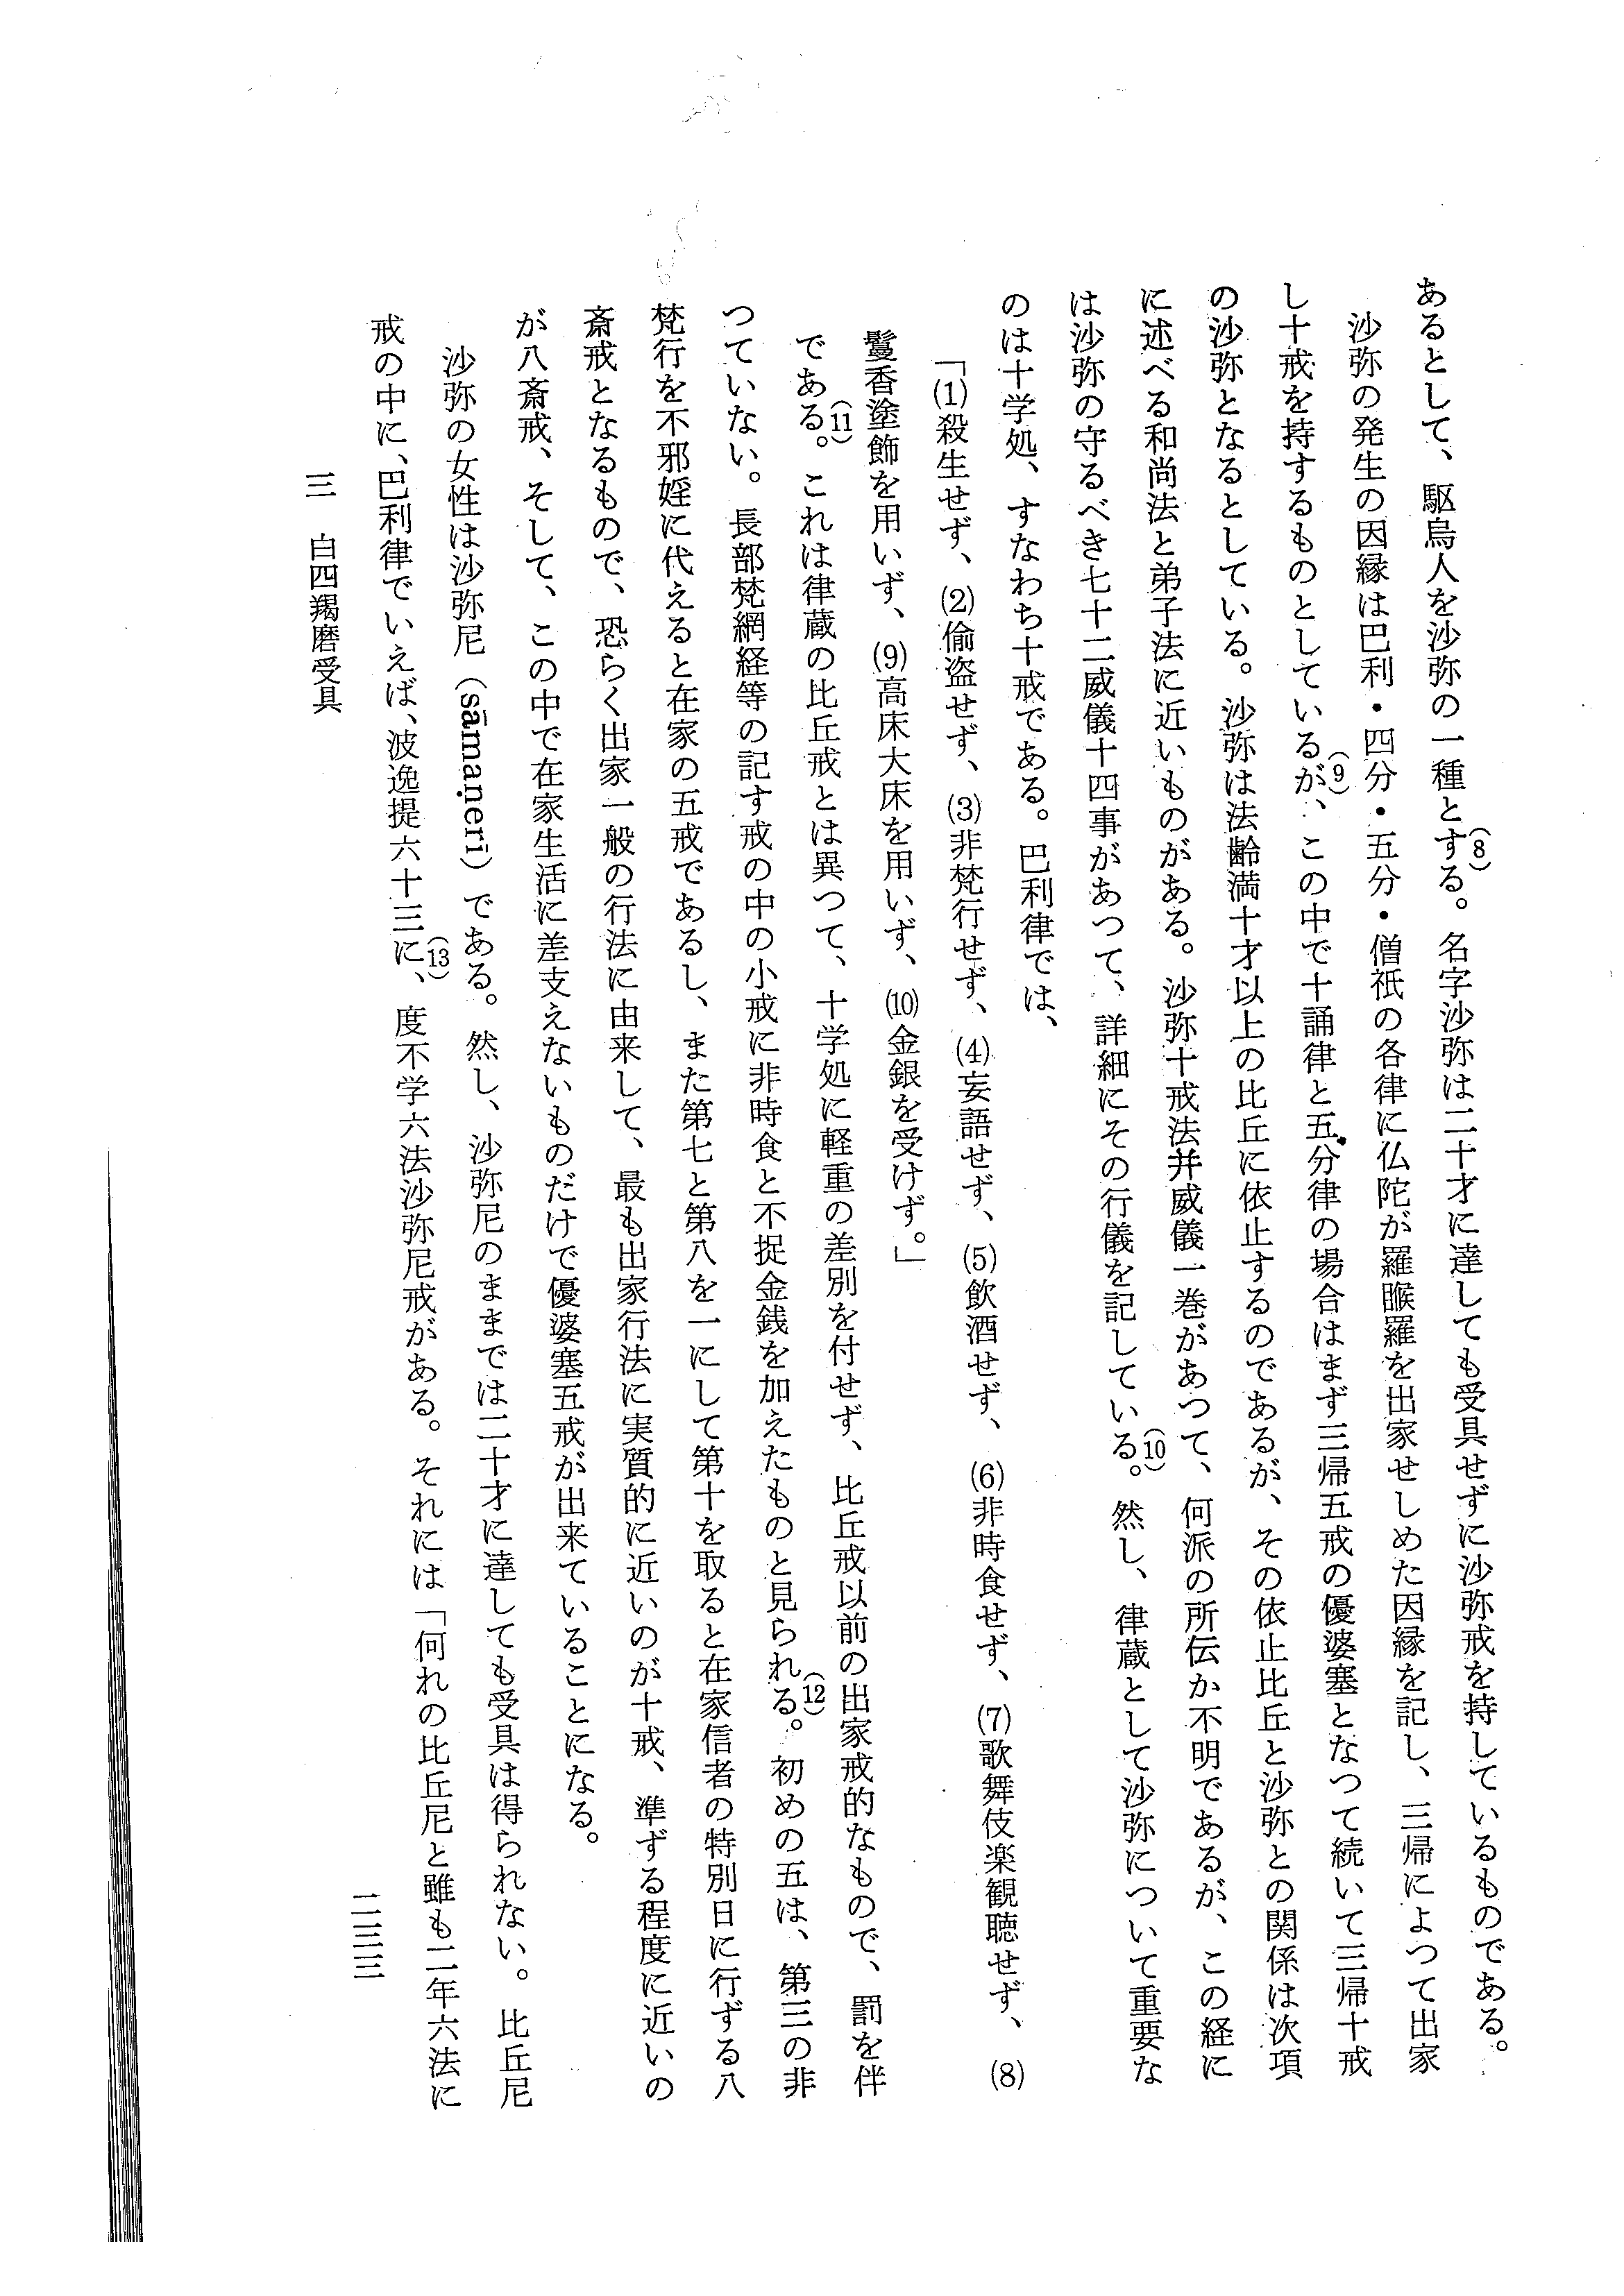 あるとして、駆烏人を沙弥の一種とする。(8)名字沙弥は二十才に達しても受具せずに沙弥戒を持しているものである。
沙弥の発生の因縁は巴利・四分・五分・僧祇の各律に仏陀が羅睺羅を出家せしめた因縁を記し、三帰によつて出家
し十戒を持するものとしているが、(9)この中で十誦律と五分律の場合はまず三帰五戒の優婆塞となつて続いて三帰十戒
の沙弥となるとしている。沙弥は法齢満十才以上の比丘に依止するのであるが、その依止比丘と沙弥との関係は次項
に述べる和尚法と弟子法に近いものがある。沙弥十戒法并威儀一巻があつて、何派の所伝か不明であるが、この経に
は沙弥の守るべき七十二威儀十四事があつて、詳細にその行儀を記している。(10)然し、律蔵として沙弥について重要な
のは十学処、すなわち十戒である。巴利律では、
「(1)殺生せず、(2)偷盗せず、(3)非梵行せず、(4)妄語せず、(5)飲酒せず、(6)非時食せず、(7)歌舞伎楽観聴せず、(8)
鬘香塗飾を用いず、(9)高床大床を用いず、(10)金銀を受けず。」
である。(11)これは律蔵の比丘戒とは異つて、十学処に軽重の差別を付せず、比丘戒以前の出家戒的なもので、罰を伴
つていない。長部梵網経等の記す戒の中の小戒に非時食と不捉金銭を加えたものと見られる。(12)初めの五は、第三の非
梵行を不邪婬に代えると在家の五戒であるし、また第七と第八を一にして第十を取ると在家信者の特別日に行ずる八
斎戒となるもので、恐らく出家一般の行法に由来して、最も出家行法に実質的に近いのが十戒、準ずる程度に近いの
が八斎戒、そして、この中で在家生活に差支えないものだけで優婆塞五戒が出来ていることになる。
沙弥の女性は沙弥尼（sāmaṇerī）である。然し、沙弥尼のままでは二十才に達しても受具は得られない。比丘尼
戒の中に、巴利律でいえば、波逸提六十三に、(13)度不学六法沙弥尼戒がある。それには「何れの比丘尼と雖も二年六法に
三　白四羯磨受具
二三三